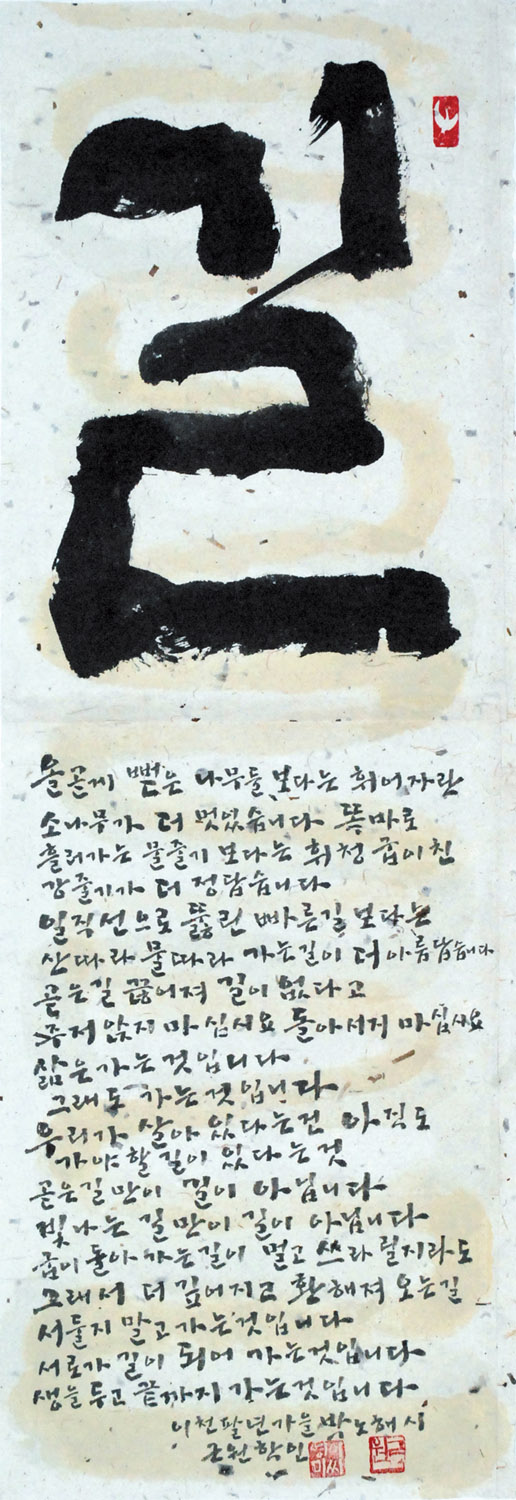 길
올곧게 뻗은 나무들 보다는 휘어자란
소나무가 더 멋있습니다 똑바로
흘러가는 물줄기 보다는 휘청 굽이친
강줄기가 더 정답습니다
일직선으로 뚫린 빠른길 보다는
산따라 물따라 가는길이 더 아름답습니다
곧은길 끊어져 길이 없다고
주저 앉지 마십시요 돌아서지 마십시요
삶은 가는 것입니다
그래도 가는 것입니다
우리가 살아 있다는건 아직도
가야 할 길이 있다는것
곧은길 만이 길이 아닙니다
빛나는 길만이 길이 아닙니다
굽이 돌아 가는길이 멀고 쓰라릴지라도
그래서 더 깊어지고 환해져 오는길
서둘지 말고 가는것입니다
서로가 길이 되어 가는것입니다
생을 두고 끝까지 가는것입니다
이천팔년가을 박노해 시
근원학인